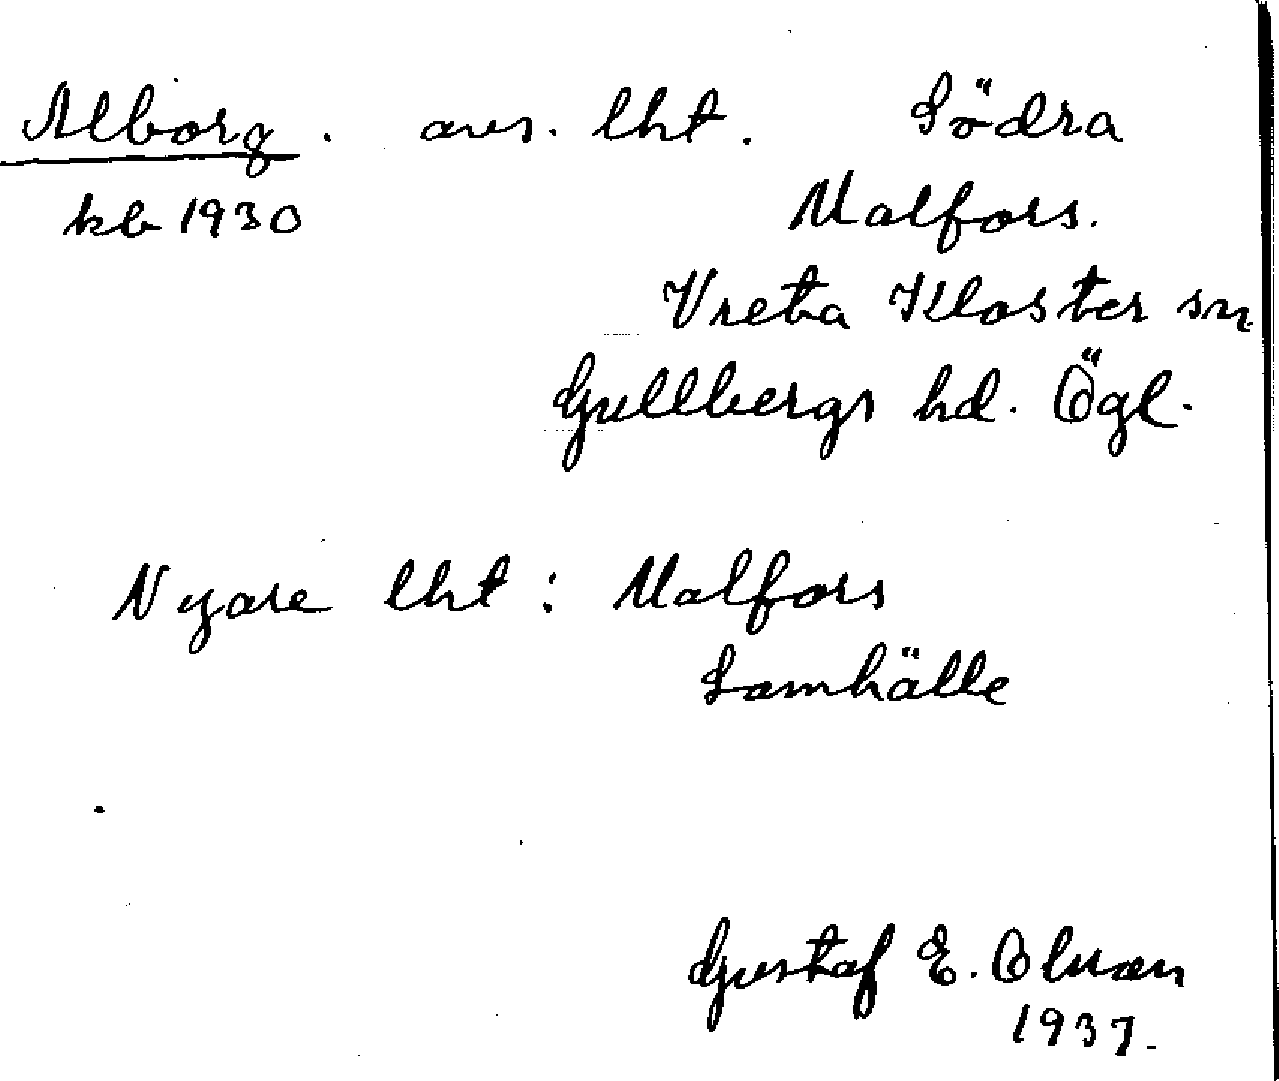 Alborg. avs. lht. Södra
kb 1930 Malfors.
Vreta Kloster sn
Gullbergs hd. Ögl.
Nyare lht: Malfors
Samhälle
Gustaf E. Olsson
1937.